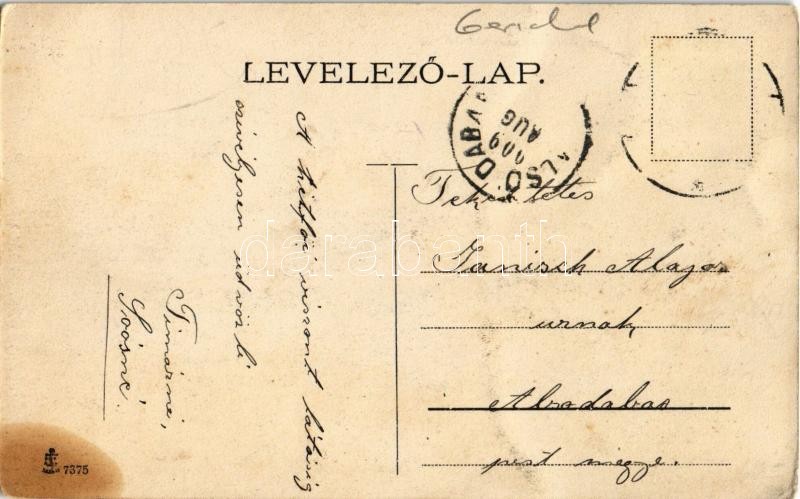 LEVELEZŐ-LAP.
ALSÓ DABA
909
AUG
A hétfői viszont látásig
szivélyesen üdvözli
Timárné,
Soósné.
Tekintetes
Janisch Alajos
urnak,
Alsódabas
pest megye.
7375
darabanth